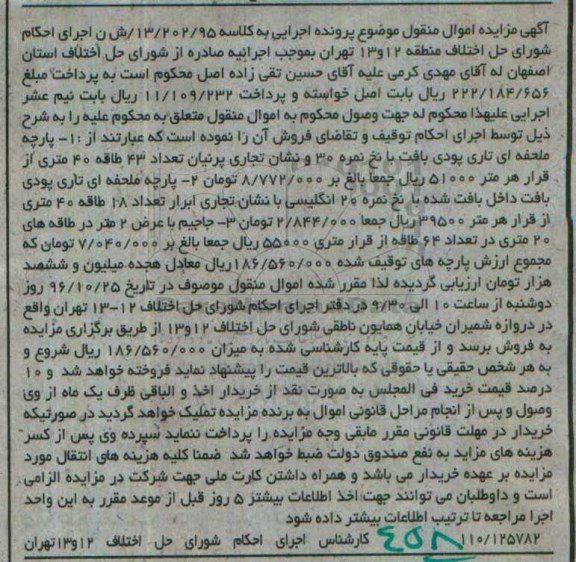 آگهی مزایده اموال منقول موضوع پرونده اجرایی به کلاسه ۱۳/۲۰۲/۹۵/ش ن اجرای احکام
شورای حل اختلاف منطقه ۱۲و۱۳ تهران بموجب اجرائیه صادره از شورای حل اختلاف استان
اصفهان له آقای مهدی کرمی علیه آقای حسین تقی زاده اصل محکوم است به پرداخت مبلغ
۲۲۲/۱۸۴/۶۵۶ ریال بابت اصل خواسته و پرداخت ۱۱/۱۰۹/۲۳۲ ریال بابت نیم عشر
اجرایی علیهذا محکوم له جهت وصول محکوم به اموال منقول متعلق به محکوم علیه را به شرح
ذیل توسط اجرای احکام توقیف و تقاضای فروش آن را نموده است که عبارتند از :۱- پارچه
ملحفه ای تاری پودی بافت با نخ نمره ۳۰ و نشان تجاری پرنیان تعداد ۴۳ طاقه ۴۰ متری از
قرار هر متر ۵۱۰۰۰ ریال جمعاً بالغ بر ۸/۷۷۲/۰۰۰ تومان ۲- پارچه ملحفه ای تاری پودی
بافت داخل بافت شده با نخ نمره ۲۰ انگلیسی با نشان تجاری ابرار تعداد ۱۸ طاقه ۴۰ متری
از قرار هر متر ۳۹۵۰۰ ریال جمعا ۲/۸۴۴/۰۰۰ تومان ۳- جاجیم با عرض ۲ متر در طاقه های
۲۰ متری در تعداد ۶۴ طاقه از قرار متری ۵۵۰۰۰ ریال جمعا بالغ بر ۷/۰۴۰/۰۰۰ تومان که
مجموع ارزش پارچه های توقیف شده ۱۸۶/۵۶۰/۰۰۰ریال معادل هجده میلیون و ششصد
هزار تومان ارزیابی گردیده لذا مقرر شده اموال منقول موصوف در تاریخ ۹۶/۱۰/۲۵ روز
دوشنبه از ساعت ۱۰ الی ۹/۳۰ در دفتر اجرای احکام شورای حل اختلاف ۱۲-۱۳ تهران واقع
در دروازه شمیران خیابان همایون ناطقی شورای حل اختلاف ۱۲و۱۳ از طریق برگزاری مزایده
به فروش برسد و از قیمت پایه کارشناسی شده به میزان ۱۸۶/۵۶۰/۰۰۰ ریال شروع و
به هر شخص حقیقی یا حقوقی که بالاترین قیمت را پیشنهاد نماید فروخته خواهد شد و ۱۰
درصد قیمت خرید فی المجلس به صورت نقد از خریدار اخذ و الباقی ظرف یک ماه از وی
وصول و پس از انجام مراحل قانونی اموال به برنده مزایده تملیک خواهد گردید در صورتیکه
خریدار در مهلت قانونی مقرر مابقی وجه مزایده را پرداخت ننماید سپرده وی پس از کسر
هزینه های مزاید به نفع صندوق دولت ضبط خواهد شد ضمنا کلیه هزینه های انتقال مورد
مزایده بر عهده خریدار می باشد و همراه داشتن کارت ملی جهت شرکت در مزایده الزامی
است و داوطلبان می توانند جهت اخذ اطلاعات بیشتر ۵ روز قبل از موعد مقرر به این واحد
اجرا مراجعه تا ترتیب اطلاعات بیشتر داده شود
۱۱۰/۱۲۵۷۸۲ کارشناس اجرای احکام شورای حل اختلاف ۱۲و۱۳تهران